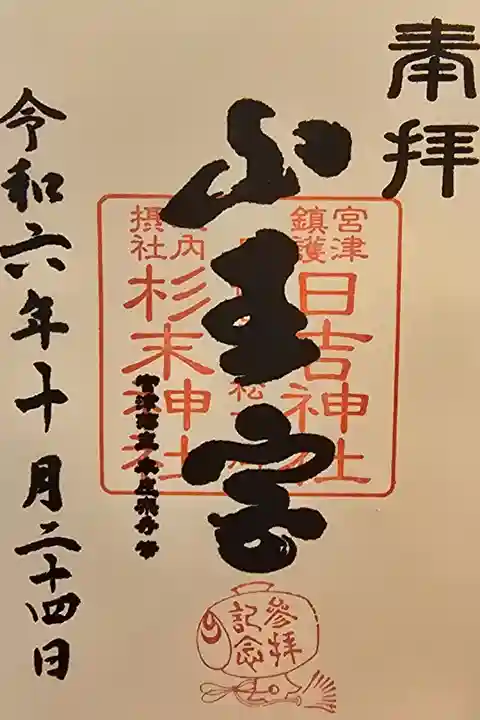 奉拝
山王宮
宮津
鎮護
日吉神社
内
摂社
杉末神社
令和六年十月二十四日
参拝
記念